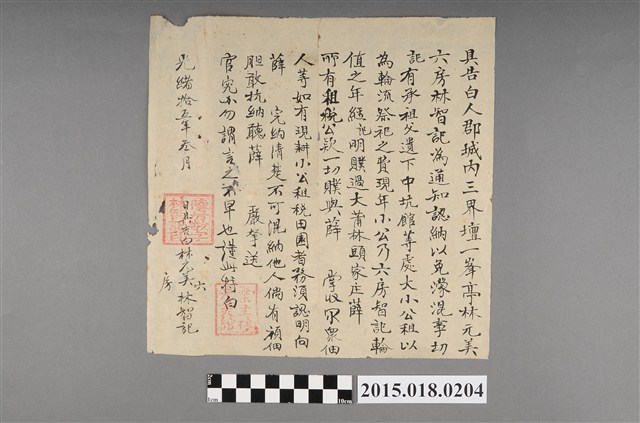 具告白人郡城內三界壇一峯亭林元美
六房林智記為通知認納以免濛混事切
記有承祖父遺下中坑館等處大小公租以
為輪流祭祀之費現年小公乃六房智記輪
值之年經記明贌過大莆林頭家庄薛
所有租税公欵一切贌與薛 掌收眾佃
人等如有現耕小公租税田園者務須認明向
薛 完納清楚不可混納他人倘有頑佃
胆敢抗納聽薛 嚴拏送
官究不勿謂言之不早也謹此特白
光緒拾五年叁月 日具告白林元美六房林智記
2cm
1cm
10cm
2015.018.0204